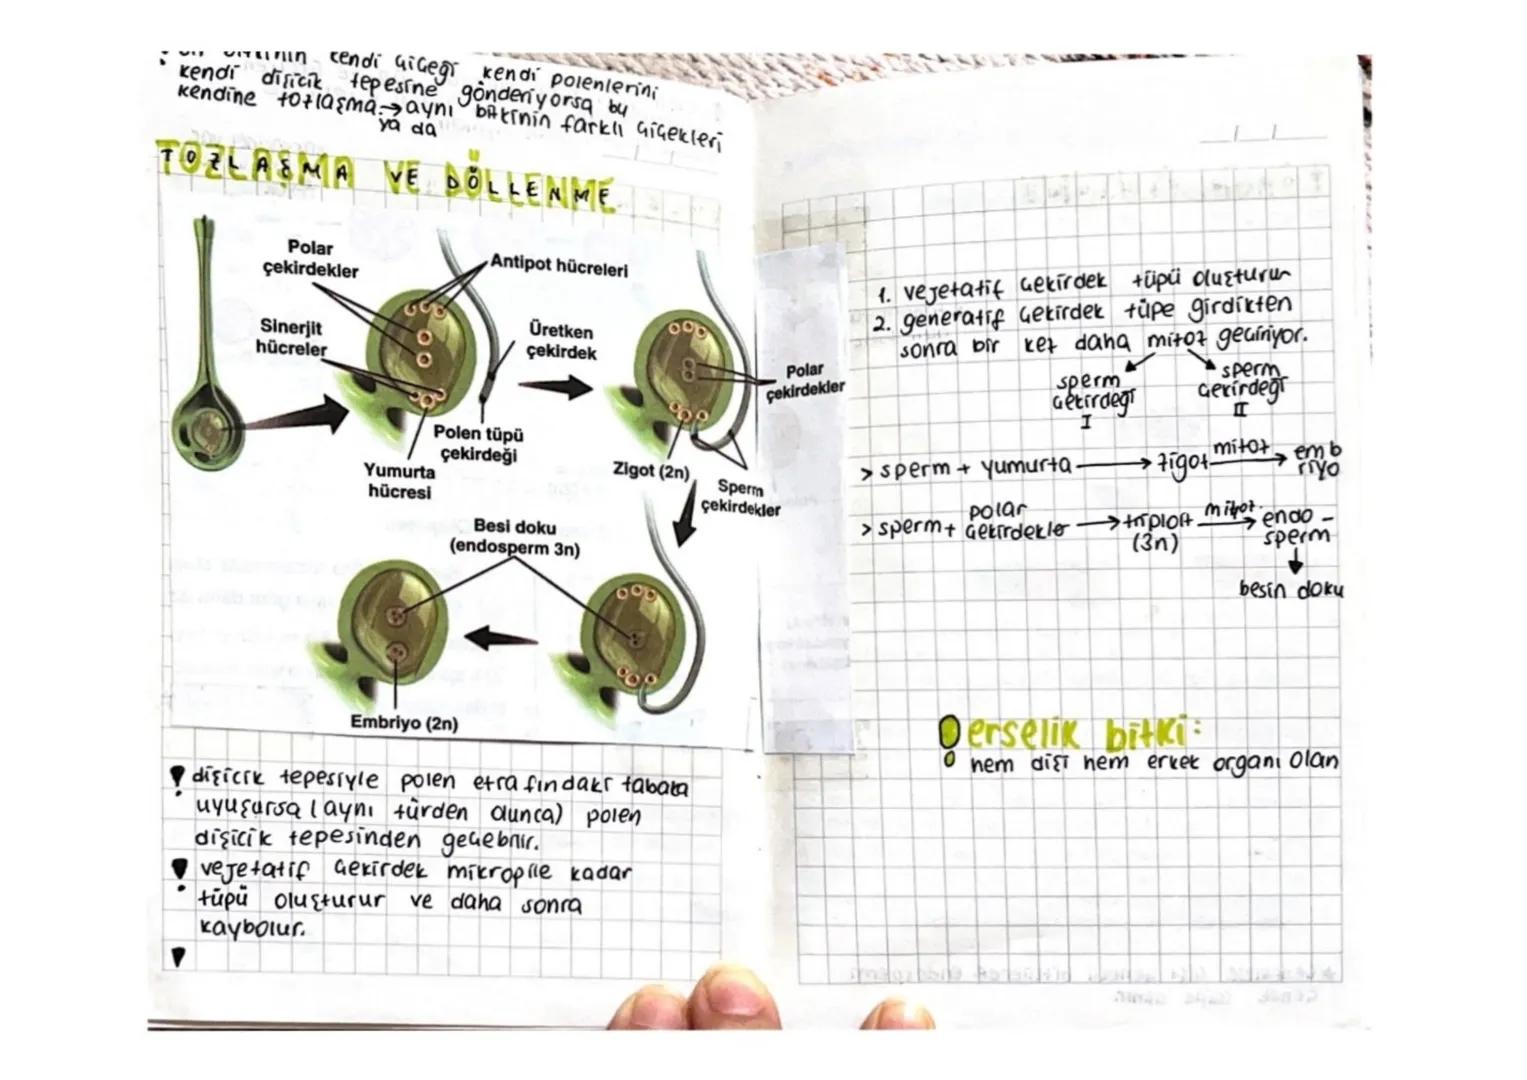 bir bitkinin kendi çiçeği kendi polenlerini
kendi dişicik tepesine gönderiyorsa bu
kendine tozlaşma. → aynı bitkinin farklı çiçekleri
ya da
TOZLAŞMA VE DÖLLENME
Polar
çekirdekler
Antipot hücreleri
Sinerjit
hücreler
Üretken
çekirdek
Polar
çekirdekler
Polen tüpü
çekirdeği
Yumurta
hücresi
Zigot (2n)
Sperm
çekirdekler
Besi doku
(endosperm 3n)
Embriyo (2n)
dişicik tepesiyle polen etrafındaki tabaka
uyuşursa (aynı türden olunca) polen
dişicik tepesinden geçebilir.
vejetatif çekirdek mikropile kadar
tüpü oluşturur ve daha sonra
kaybolur.
1. vejetatif çekirdek tüpü oluşturur
2. generatif çekirdek tüpe girdikten
sonra bir kez daha mitoz geçiriyor.
sperm
çekirdeği
I
sperm
çekirdeği
II
> sperm + yumurta → zigot mitoz → emb
riyo
> sperm + polar
çekirdekler → triploit mitoz → endo -
(3n) sperm
besin doku
erselik bitki:
hem dişi hem erkek organı olan